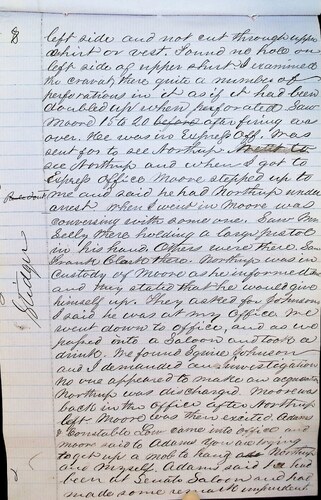 8
left side and not cut through upper
shirt or vest. Found no hole on
left side of upper shirt I examined
the cravat, there quite a number of
perforations in it as if it had been
doubled up when perforated. Saw
Moord 15 to 20 before after firing was
over. Hee was in Express Off. Was
sent for to see Northup.
see Northup and when I got to
Express office Moore stepped up to
me and said he had Northup under
arrest. When I went in Moore was
conversing with some one. Saw Mr
there holding a large pistol
in his hand. Others were there. Saw
Frank Clark there. Northup was in
custody of Moore as he informed me
and they stated that he would give
himself up. They asked for Johnson
I said he was at my Office we
went down to office, and as we
passed into a Saloon and took a
drink. We found Squire Johnson
and I demanded an investigation
no one appeared to make an
Northup was discharged. Moore was
back in the office after Northup
left. Moore was there excited Adams
& Constable came into office and
Moore said to Adams you are trying
to get up a mob to hang Northup
and myself. Adams said he had
been at Senate Saloon and had
made some remark